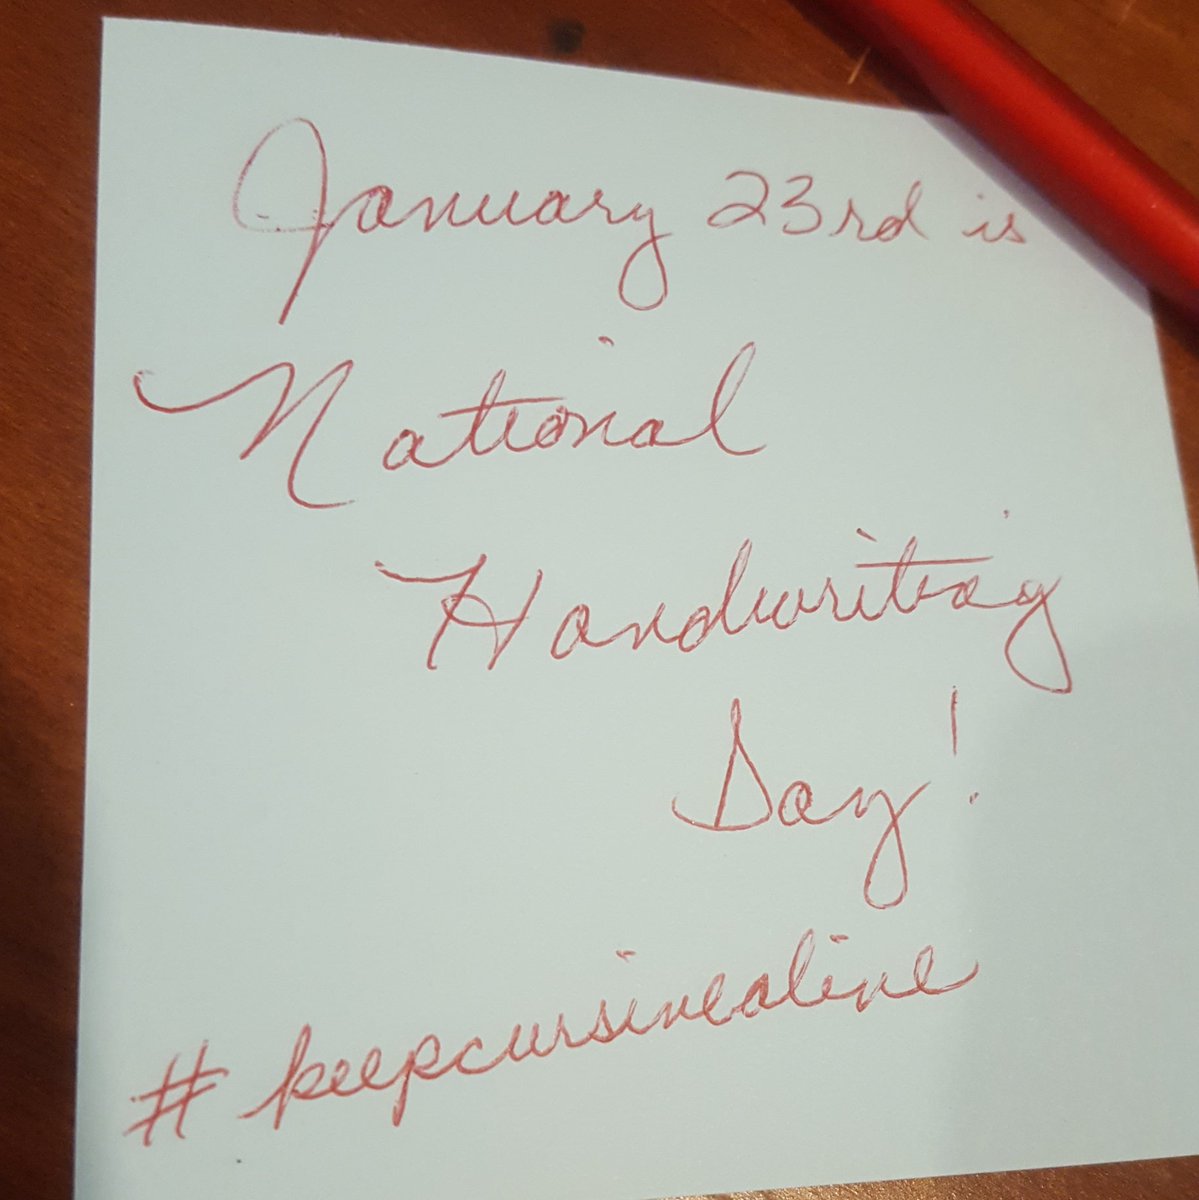 January 23rd is
National
Handwriting
Day!
#keepcursivealive